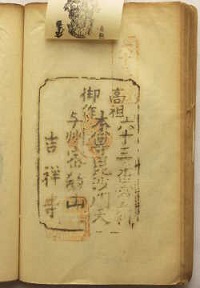 高祖六十三番霊場
御作本尊毘沙門天
与州密教山
吉祥寺